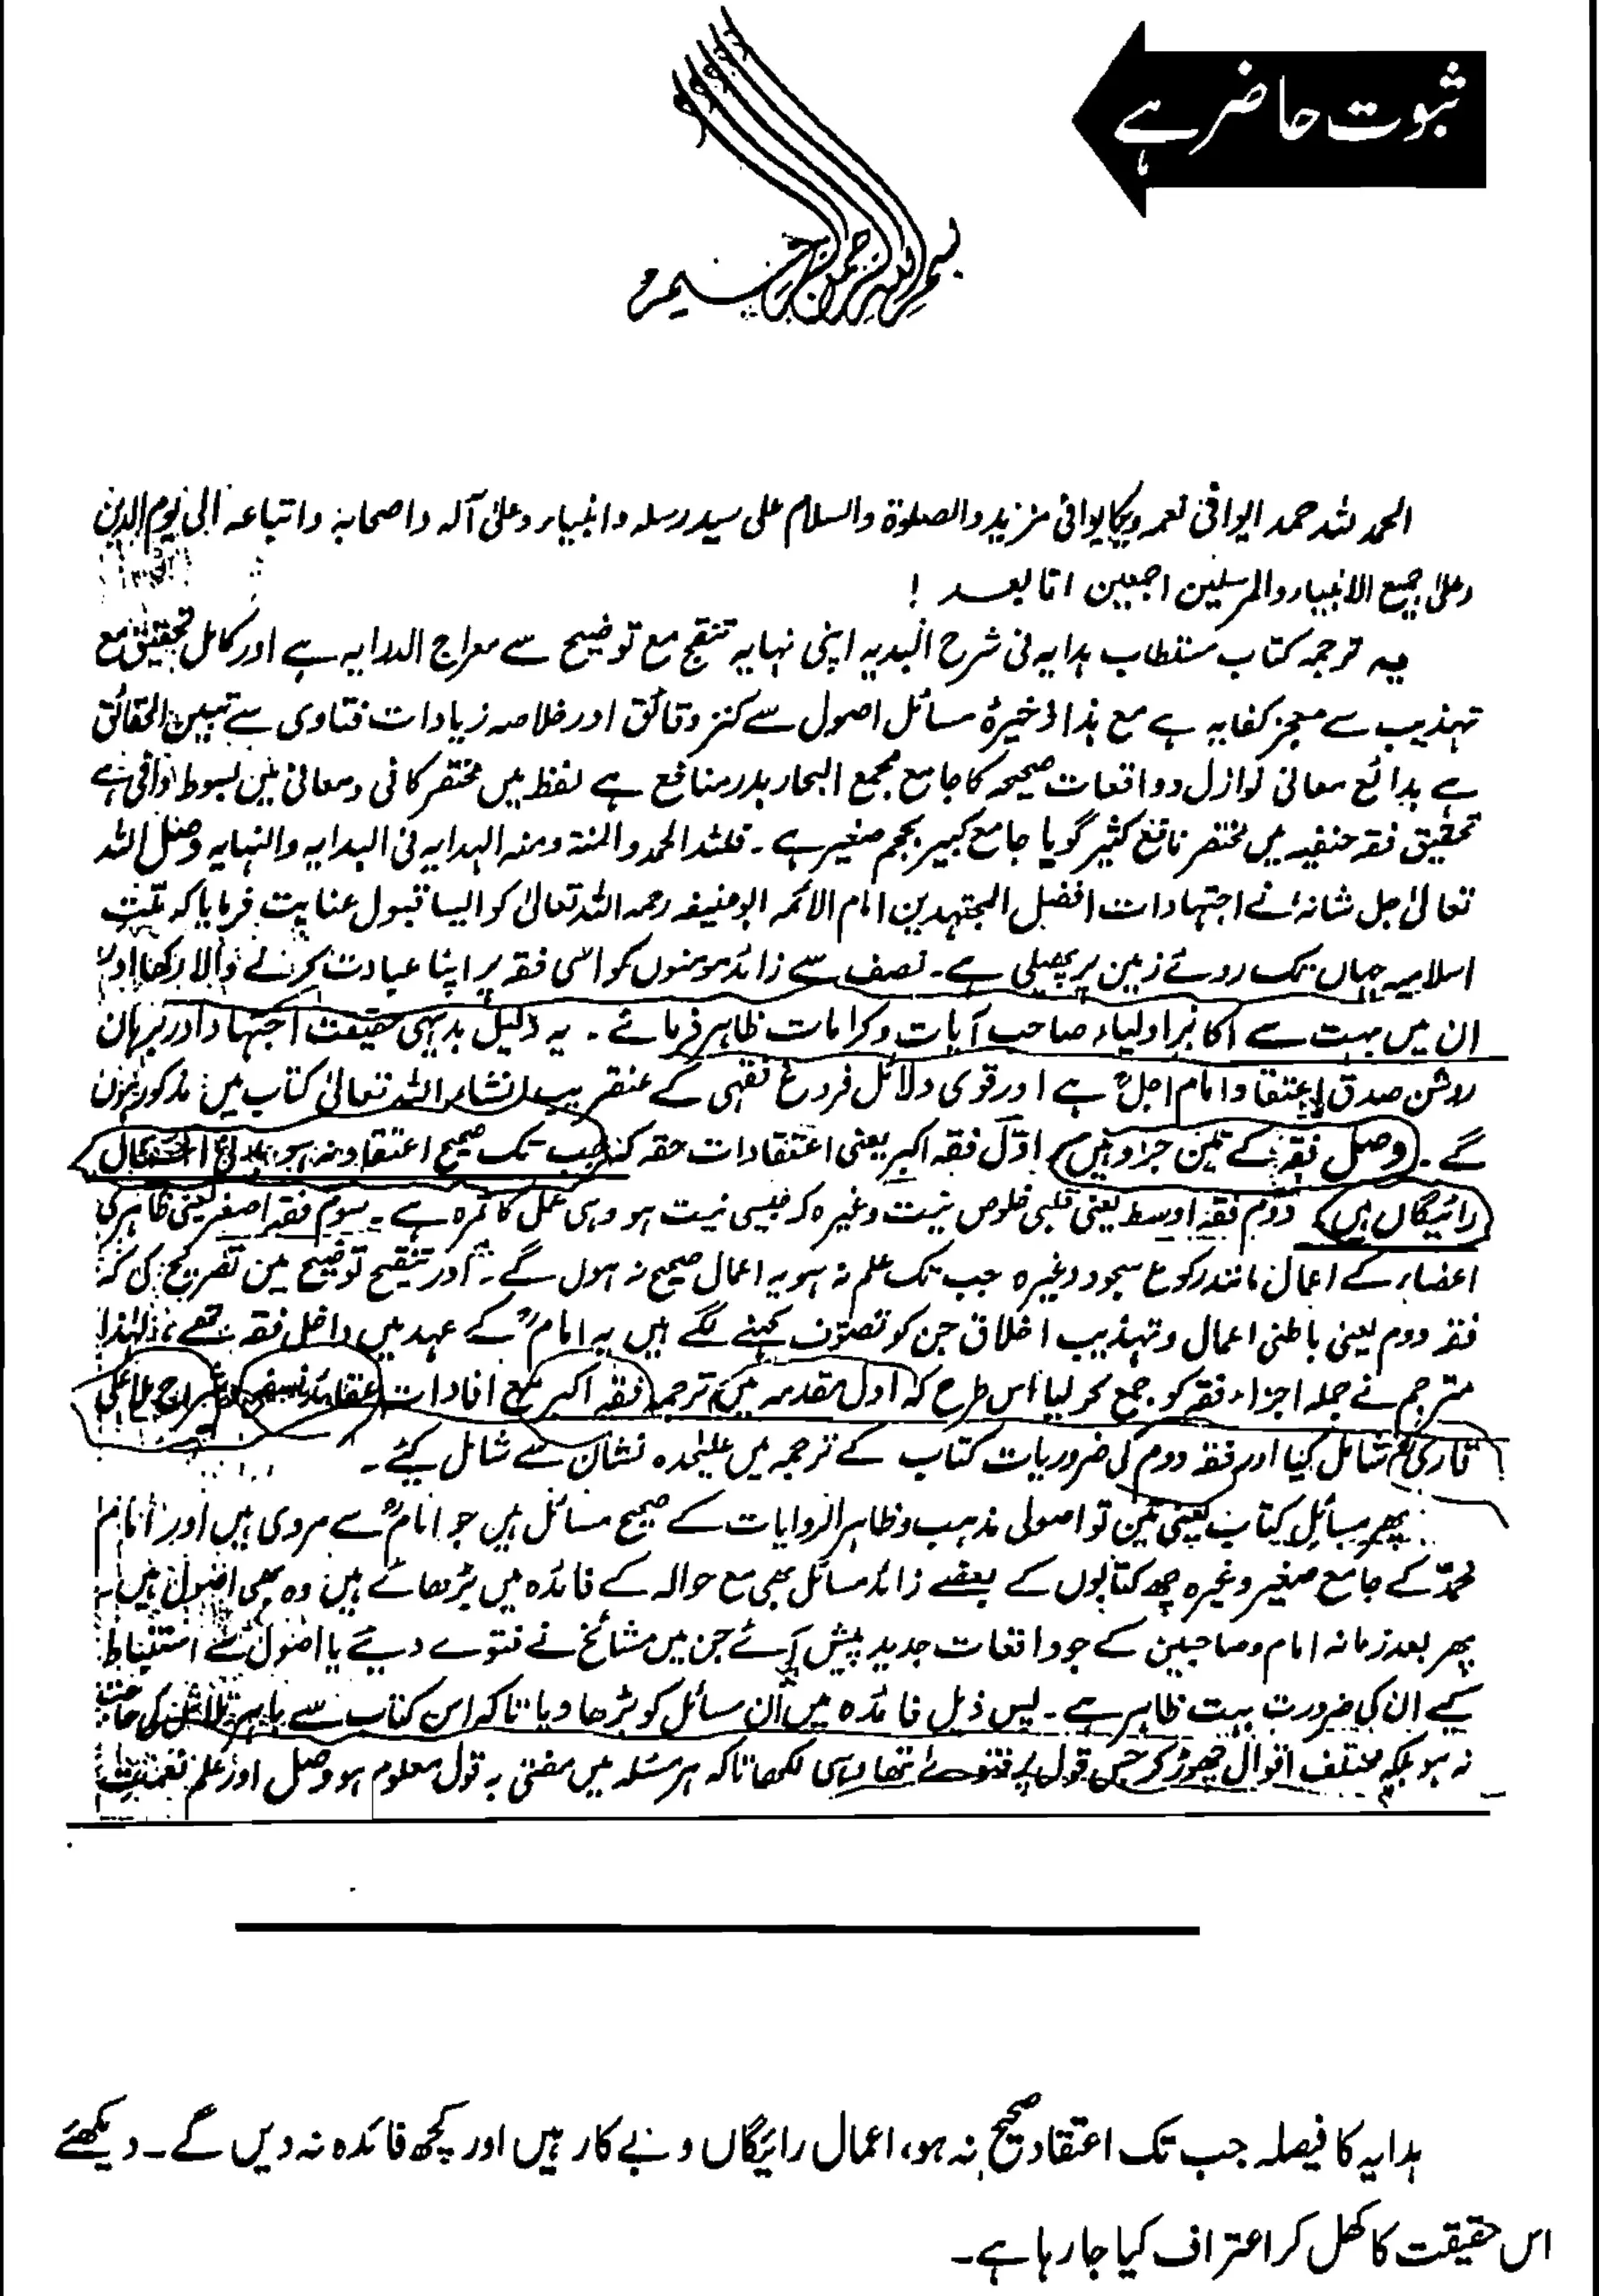 ثبوت حاضر ہے
بسم اللہ الرحمن الرحیم
الحمد للہ حمد ایوافی نعمہ ویکایوافی مزیدہ والصلوٰۃ والسلام علی سید رسلہ وانبیاء وعلیٰ آلہ واصحابہ واتباعہ الیٰ یوم الدین
وعلیٰ جمیع الانبیاء والمرسلین اجمعین امّا بعد !
یہ ترجمہ کتاب مستطاب ہدایہ فی شرح البدیہ اپنی نہایہ تنقیح مع توضیح سے معراج الدرایہ ہے اور کامل تحقیق مع
تہذیب سے معجز کفایہ ہے مع ہذا ذخیرۂ مسائل اصول سے کنز دقائق اور خلاصہ زیادات فتاوی سے تبیین الحقائق
ہے بدائع معانی نوازل و واقعات صحیحہ کا جامع مجمع البحار بدر منافع ہے لفظ میں مختصر کافی و معانی میں بسوط وافی ہے
تحقیق فقہ حنفیہ میں مختصر نافع کثیر گویا جامع کبیر بحجم صغیر ہے۔ فللہ الحمد والمنۃ ومنہ الہدایہ فی البدایہ والنہایہ وصل اللہ
تعالیٰ جل شانہٗ نے اجتہادات افضل المجتہدین امام الائمہ ابوحنیفہ رحمہ اللہ تعالیٰ کو ایسا قبول عنایت فرمایا کہ ملّت
اسلامیہ جہاں تک روئے زمین پر پھیلی ہے۔ نصف سے زائد مومنوں کو اسی فقہ پر اپنا عبادت کرنے والا رکھا اور
ان میں بہت سے اکابر اولیاء صاحب آیات و کرامات ظاہر فرمائے۔ یہ دلیل بدیہی حقیقت اجتہاد اور برہان
روشن صدق اعتقاد امام اجلؒ ہے اور قوی دلائل فروع فقہی کے عنقریب انشاء اللہ تعالیٰ کتاب میں مذکور ہوں
گے۔ وصل فقہ کے تین جزو ہیں اوّل فقہ اکبر یعنی اعتقادات حقہ کہ جب تک صحیح اعتقاد نہ ہو اعمال
رائیگاں ہیں دوم فقہ اوسط یعنی قلبی خلوص نیت وغیرہ کہ جیسی نیت ہو وہی عمل کا ثمرہ ہے۔ سوم فقہ اصغر یعنی ظاہری
اعضاء کے اعمال مانند رکوع سجود وغیرہ جب تک علم نہ ہو یہ اعمال صحیح نہ ہوں گے۔ اور تنقیح توضیح میں تصریح کی کہ
فقہ دوم یعنی باطنی اعمال و تہذیب اخلاق جن کو تصوّف کہنے لگے ہیں یہ امامؒ کے عہد میں داخل فقہ تھے، لہٰذا
مترجم نے جملہ اجزاء فقہ کو جمع کر لیا اس طرح کہ اول مقدمہ میں ترجمہ فقہ اکبر مع افادات عقائد نسفی و شرح ملا علی
قاریؒ شامل کیا اور فقہ دوم کی ضروریات کتاب کے ترجمہ میں علیٰحدہ نشان سے شامل کئے۔
پھر مسائل کتاب یعنی متن تو اصولی مذہب و ظاہر الروایات کے صحیح مسائل ہیں جو امامؒ سے مروی ہیں اور امام
محمدؒ کے جامع صغیر وغیرہ چھ کتابوں کے بعضے زائد مسائل بھی مع حوالہ کے فائدہ میں بڑھائے ہیں وہ بھی اصول ہیں۔
پھر بعد زمانہ امام و صاحبین کے جو واقعات جدید پیش آئے جن میں مشائخ نے فتوے دیئے یا اصول سے استنباط
کیے ان کی ضرورت بہت ظاہر ہے۔ پس ذیل فائدہ میں ان مسائل کو بڑھا دیا تاکہ اس کتاب سے باہر تلاش کی حاجت
نہ ہو بلکہ مختلف اقوال چھوڑ کر جس قول پر فتوےٰ تھا وہی لکھا تاکہ ہر مسئلہ میں مفتی بہ قول معلوم ہو وصل اور علم نعمت
ہدایہ کا فیصلہ جب تک اعتقاد صحیح نہ ہو، اعمال رائیگاں و بے کار ہیں اور کچھ فائدہ نہ دیں گے۔ دیکھئے
اس حقیقت کا کھل کر اعتراف کیا جا رہا ہے۔